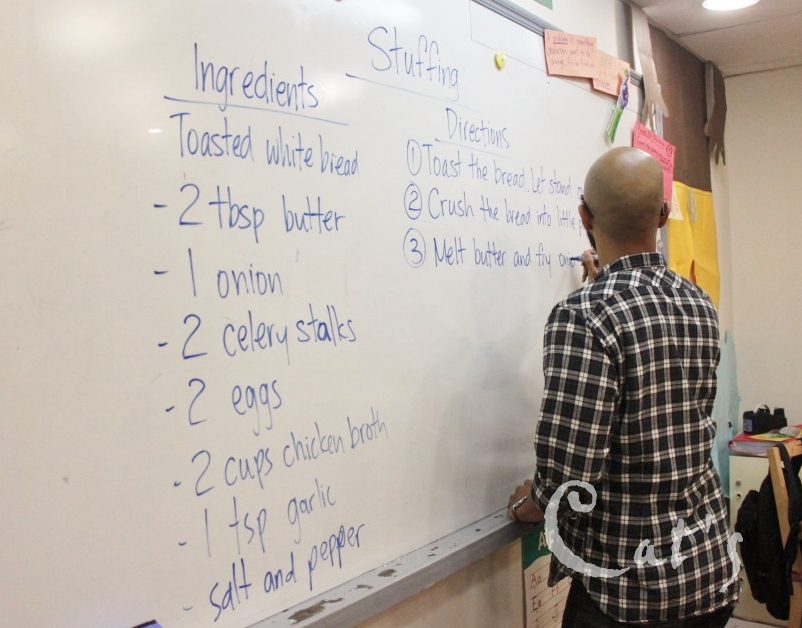 Stuffing
Ingredients
Toasted white bread
- 2 tbsp butter
- 1 onion
- 2 celery stalks
- 2 eggs
- 2 cups chicken broth
- 1 tsp garlic
- salt and pepper
Directions
① Toast the bread. Let stand
② Crush the bread into little
③ Melt butter and fry
Cat's